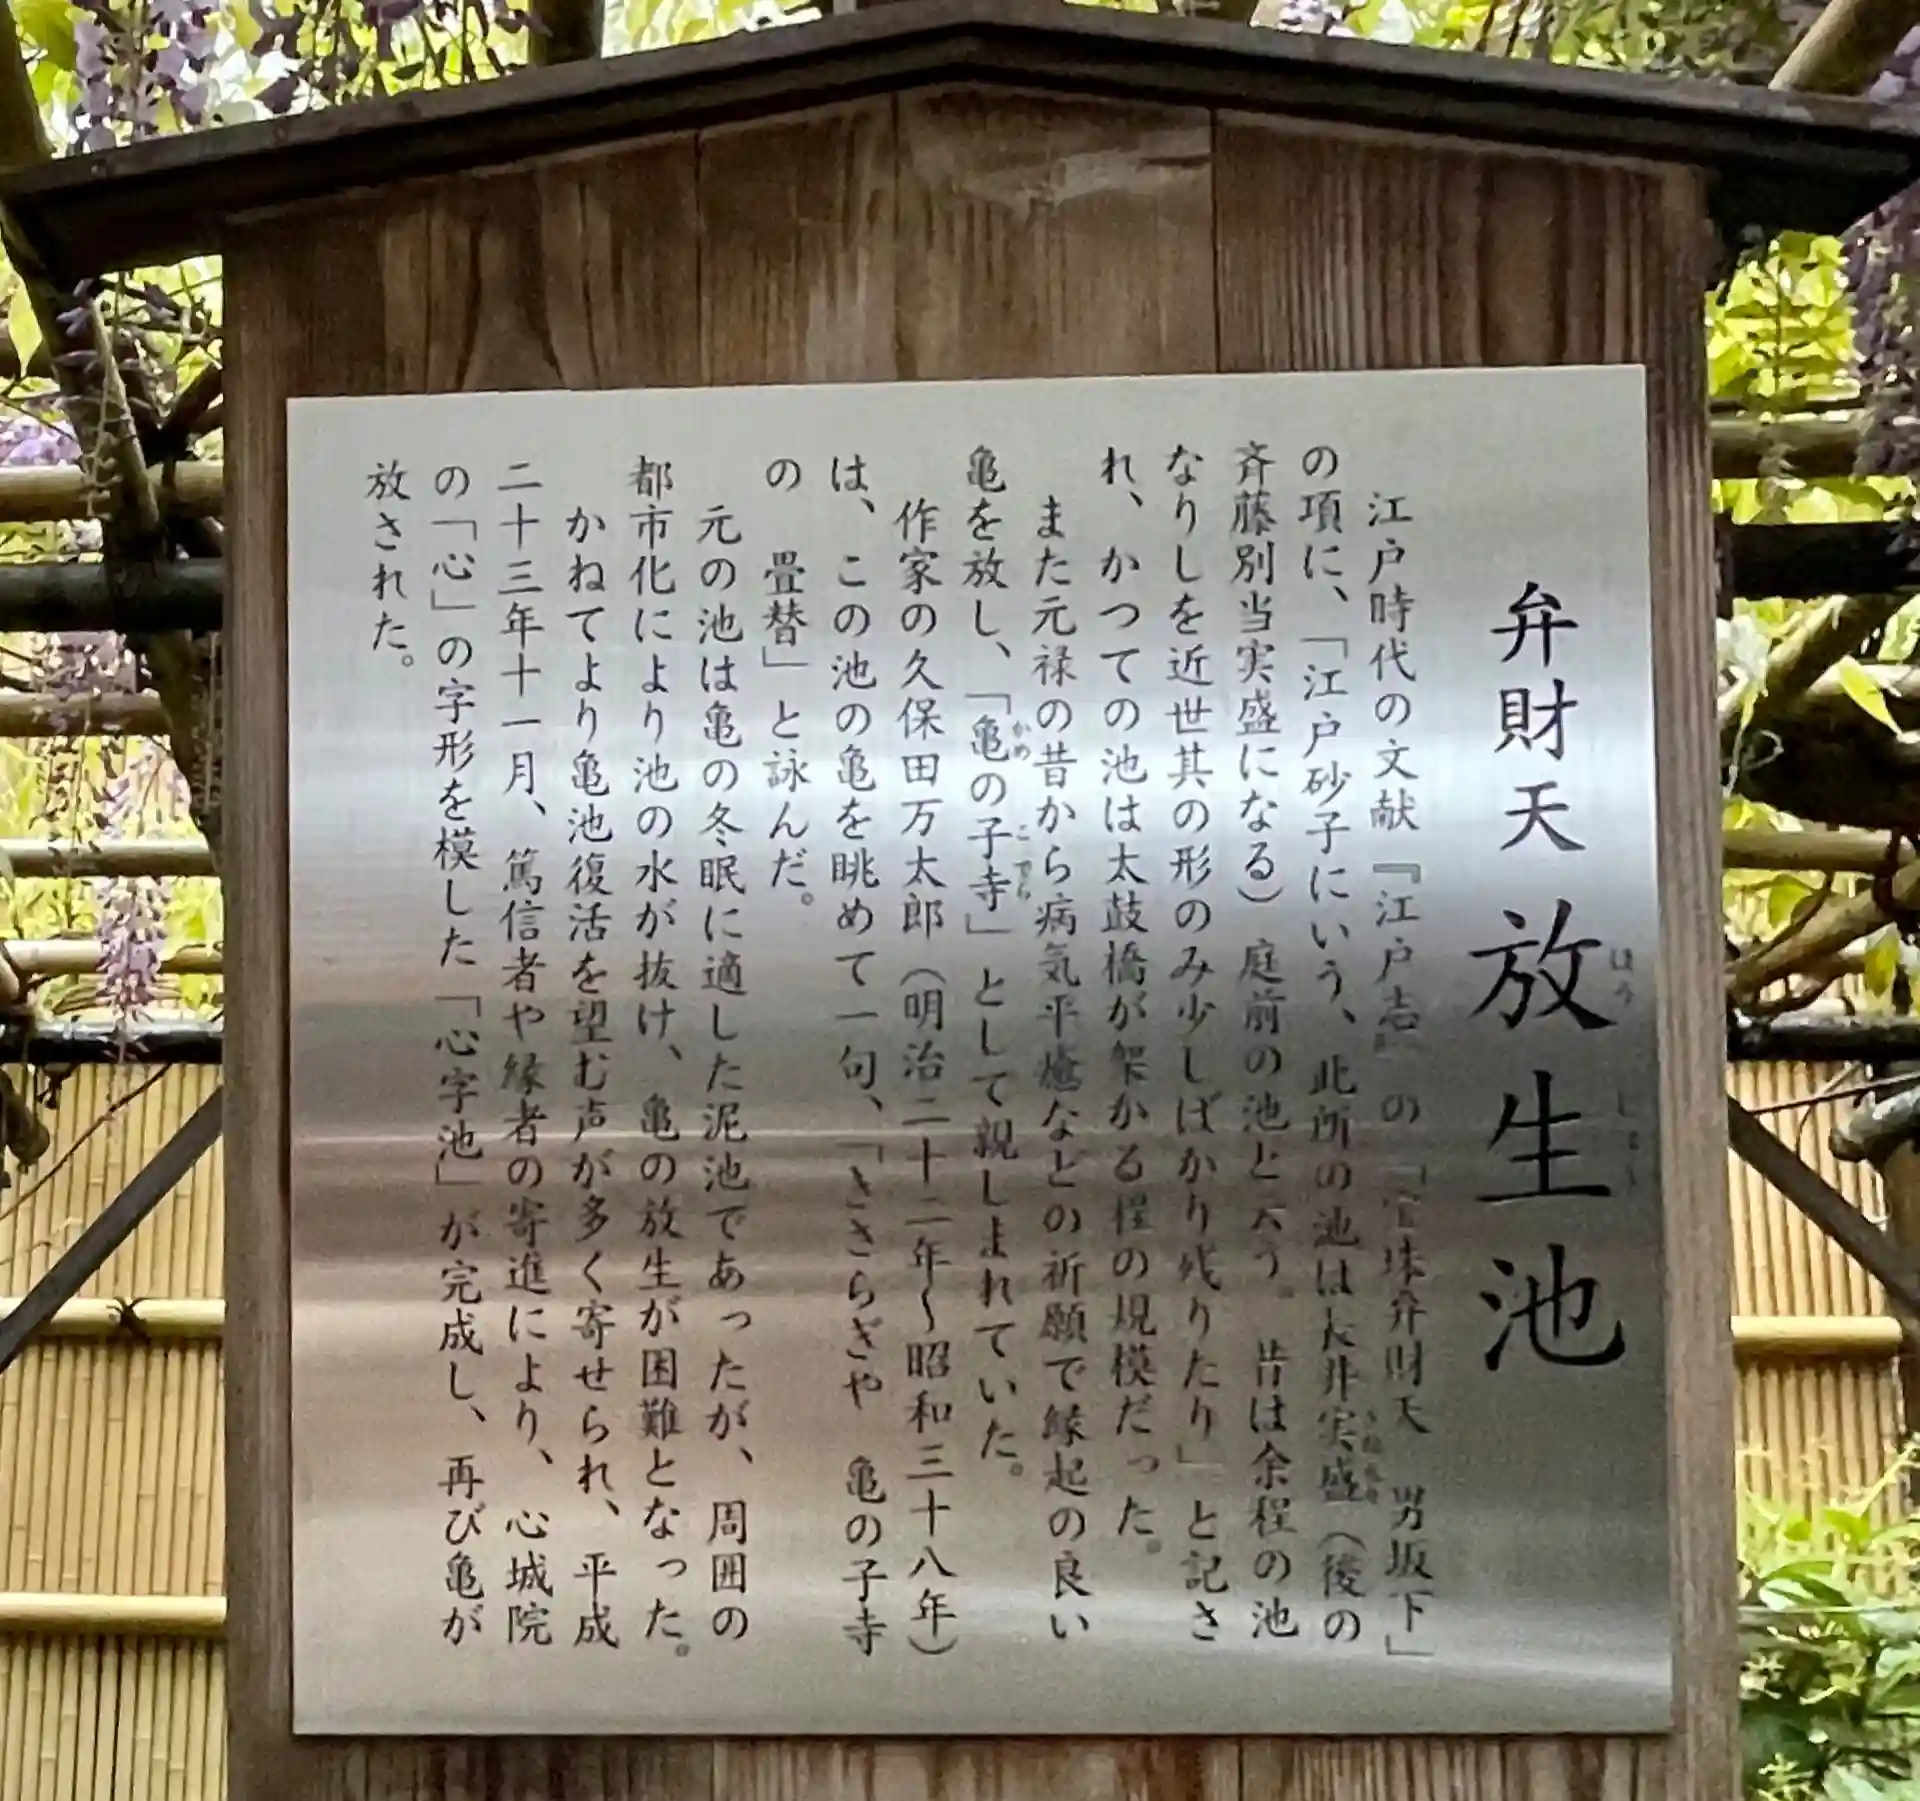 弁財天 放生池
ほう しょう
江戸時代の文献『江戸志』の「宝珠弁財天 男坂下」
の項に、「江戸砂子にいう、此所の池は長井実盛(後の
さねもり
斉藤別当実盛になる)庭前の池と云う。昔は余程の池
なりしを近世其の形のみ少しばかり残りたり」と記さ
れ、かつての池は太鼓橋が架かる程の規模だった。
また元禄の昔から病気平癒などの祈願で縁起の良い
亀を放し、「亀の子寺」として親しまれていた。
かめ こでら
作家の久保田万太郎(明治二十二年〜昭和三十八年)
は、この池の亀を眺めて一句、「きさらぎや 亀の子寺
の 畳替」と詠んだ。
元の池は亀の冬眠に適した泥池であったが、周囲の
都市化により池の水が抜け、亀の放生が困難となった。
かねてより亀池復活を望む声が多く寄せられ、平成
二十三年十一月、篤信者や縁者の寄進により、心城院
の「心」の字形を模した「心字池」が完成し、再び亀が
放された。